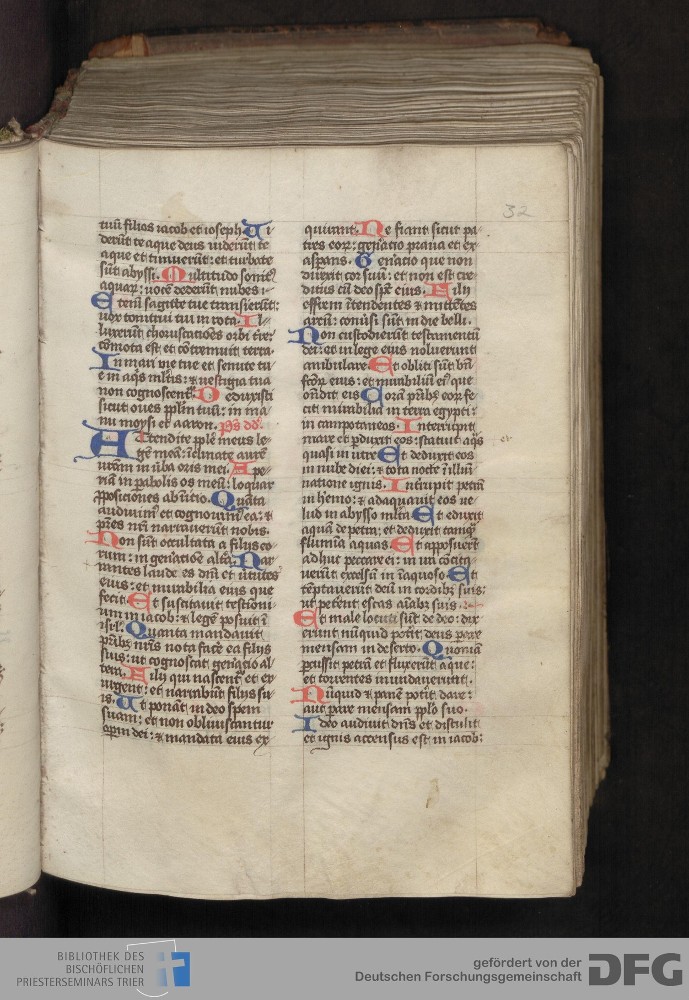 32
tuū filios iacob et ioseph Ui
derūt te aque deus uiderūt te
aque et timuerūt: et turbate
sūt abyssi. Multitudo sonit᷒
aquaꝝ: uocē dederūt nubes.
Etenī sagitte tue transierūt:
uox tonitrui tui in rota. Il
luxerūt choruscatiōes orbi t̄re:
cōmota est et cōtremuit terra.
In mari uie tue et semite tu
e in aq̄s ml̄tis: ⁊ uestigia tua
non cognoscent᷑. Deduxisti
sicut oues ppl̄m tuū: in ma
nu moysi et aaron. p̄s dd.
Attendite pple meus le
gē meā: īclinate aurē
urām in ūba oris mei. Ape
riā in parabolis os meū: loquar
ꝓposiciones ab ītio. Quāta
audiuim᷒ et cognouim᷒ ea: ⁊
p̄res nr̄i narrauerūt nobis.
Non sūt occultata a filijs eo
rum: in gen̄atiōe alt̄a. Nar
rantes laudes dn̄i et ūtutes
eius: et mirabilia eius que
fecit. Et suscitauit testimoni
um in iacob: ⁊ legē posuit ī
isrl̄. Quanta mandauit
pr̄ib᷒ nr̄is nota facē ea filijs
suis: ut cognoscat gen̄atio al
tera. Filij qui nascent᷑ et ex
urgent: et narrabūt filijs su
is. Ut ponāt in deo spem
suam: et non obliuiscantur
oꝑum dei: ⁊ mandata eius ex
quirant. Ne fiant sicut pa
tres eoꝝ: gen̄atio praua et ex
asp̄ans. Gen̄atio que non
direxit cor suū: et non est cre
ditus cū deo sp̄c eius. Filij
effrem ītendentes ⁊ mittētes
arcū: conūsi sūt in die belli.
Non custodierūt testamentū
dei: et in lege eius noluerunt
ambulare. Et obliti sūt bn̄
fc̄oꝝ eius: et mirabiliū ei᷒ que
on̄dit eis. Corā pr̄ib᷒ eoꝝ fe
cit mirabilia in terra egypti:
in campo taneos. Interrupit
mare et ꝑduxit eos: statuit aq̄s
quasi in utre. Et deduxit eos
in nube diei: ⁊ tota nocte ī illūi
natione ignis. Int̄rupit petrā
in h̄emo: ⁊ adaquauit eos ue
lud in abysso ml̄ta. Et eduxit
aquā de petra: et deduxit tamq̄
flumina aquas. Et apposuerūt
adhuc peccare ei: in irā cōcita
uerūt excelsū in īaquoso. Et
tēptauerūt deū in cordib᷒ suis:
ut peterēt escas aīab᷒ suis.
Et male locuti sūt de deo: dix
erunt nūquid pot̄it deus pare
mensam in deserto. Quoniā
ꝑcussit petrā et fluxerūt aque:
et torrentes inundauerunt.
Nūquid ⁊ panē pot̄it dare:
aut pare mensam pplo suo.
Ideo audiuit dn̄s et distulit
et ignis accensus est in iacob:
BIBLIOTHEK DES
BISCHÖFLICHEN
PRIESTERSEMINARS TRIER
gefördert von der
Deutschen Forschungsgemeinschaft
DFG